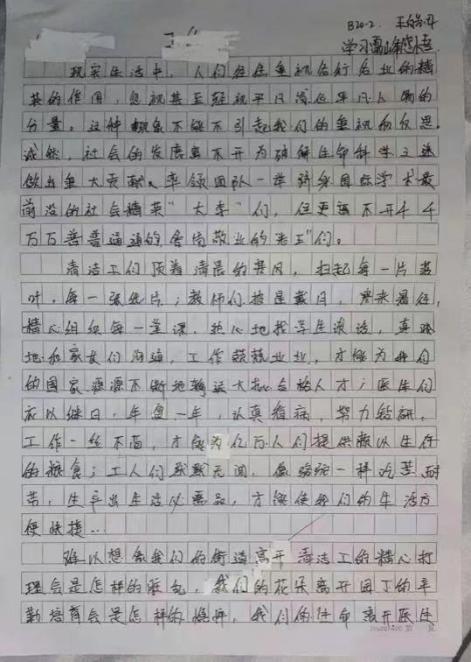 学习雷锋感悟
现实生活中，人们往往重视各行各业的精
英的作用，忽视甚至轻视平凡岗位平凡人物的
分量。这种现象不能不引起我们的重视和反思。
诚然，社会的发展离不开为破解生命科学之谜
做出重大贡献、率领团队一举跻身国际学术最
前沿的社会精英"大李"们，但更离不开千千
万万普普通通的爱岗敬业的"老王"们。
清洁工们顶着清晨的寒风，扫起每一片落
叶，每一张纸片；教师们披星戴月，寒来暑往，
精心组织每一堂课，热心地找学生谈话，真诚
地和家长们沟通，工作兢兢业业，才能为我们
的国家源源不断地输送大批合格人才；医生们
夜以继日，年复一年，认真看病，努力钻研，
工作一丝不苟，才能为亿万人们提供赖以生存
的粮食；工人们默默无闻，像骆驼一样吃苦耐
劳，生产出生活必需品，才能使我们的生活方
便快捷…
难以想象我们的街道离开清洁工的精心打
理会是怎样的，我们的花朵离开园丁的辛
勤培育会是怎样的，我们的生命离开医生